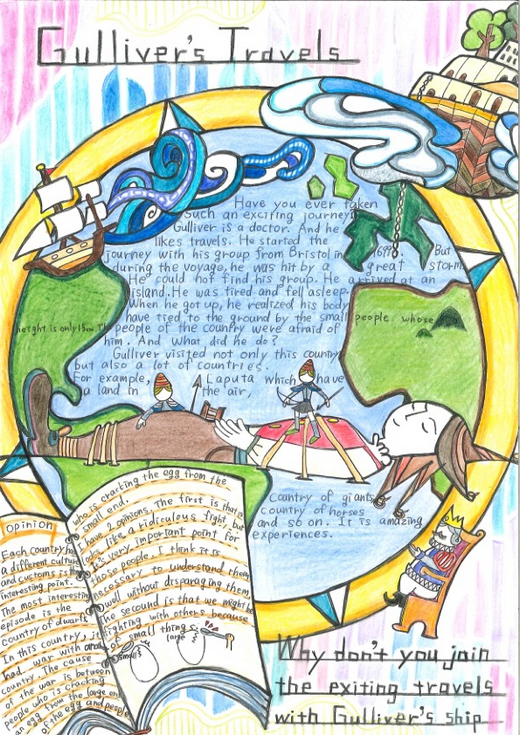 Gulliver's Travels
Have you ever taken
Such an exciring journey?
Gulliver is a doctor. And he
likes travels. He started the
journey with his group from Bristol in 1699. But
during the voyage, he was hit by a great storm
He could not find his group. He arrived at an
island. He was tired and fell asleep.
When he got up, he realized his body
have tied to the ground by the small people. whose
height is only 15cm. The people of the country were afraid of
him. And what did he do?
Gulliver visited not only this country
but also a lot of countries.
For example, Laputa which have
a land in the air,
Cantry of giants,
country of horses
and so on. It is amazing
experiences.
Opinion
Each country has
a different culture
and customs is the
interesting point.
The most interesting
episode is the
country of dwarfs
In this country, it
had war with another
country. The cause
of the war is between
people who is cracking
an egg from the large end
of the egg and people
who is cracking the egg from the
small end.
I have 2 opinions. The first is that is
looks like a ridiculous fight, but
it's very important point for
those people. I think it is
necessary to understand them
well without disparaging them.
The secound is that we might be
fighting with others because
of small things.
small
large
Why don't you join
the exiting travels
with Gulliver's ship